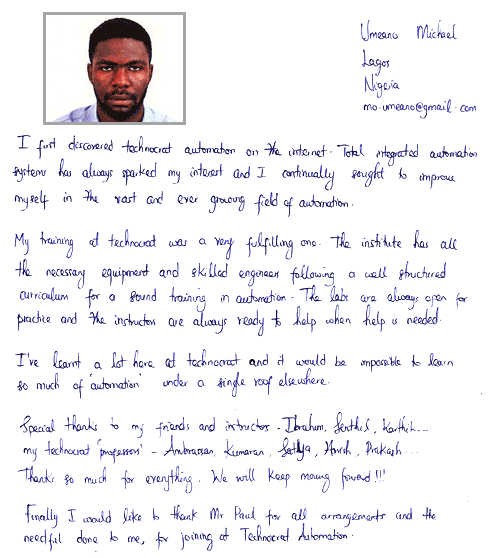 Umeano Michael
Lagos
Nigeria
mo.umeano@gmail.com
I first discovered technocrat automation on the internet. Total integrated automation
systems has always sparked my interest and I continually sought to improve
myself in the vast and ever growing field of automation.
My training at technocrat was a very fulfilling one. The institute has all
the necessary equipment and skilled engineer following a well structured
curriculum for a sound training in automation. The labs are always open for
practice and the instructors are always ready to help when help is needed.
I've learnt a lot here at technocrat and it would be impossible to learn
so much of 'automation' under a single roof elsewhere.
Special thanks to my friends and instructors - Ibrahim, Senthil, Karthik...
my technocrat 'professors' - Anbrassan, Kumaran, Sathya, Harish, Prakash...
Thanks so much for everything. We will keep moving forward!!!
Finally I would like to thank Mr Paul for all arrangements and the
needful done to me, for joining at Technocrat Automation.